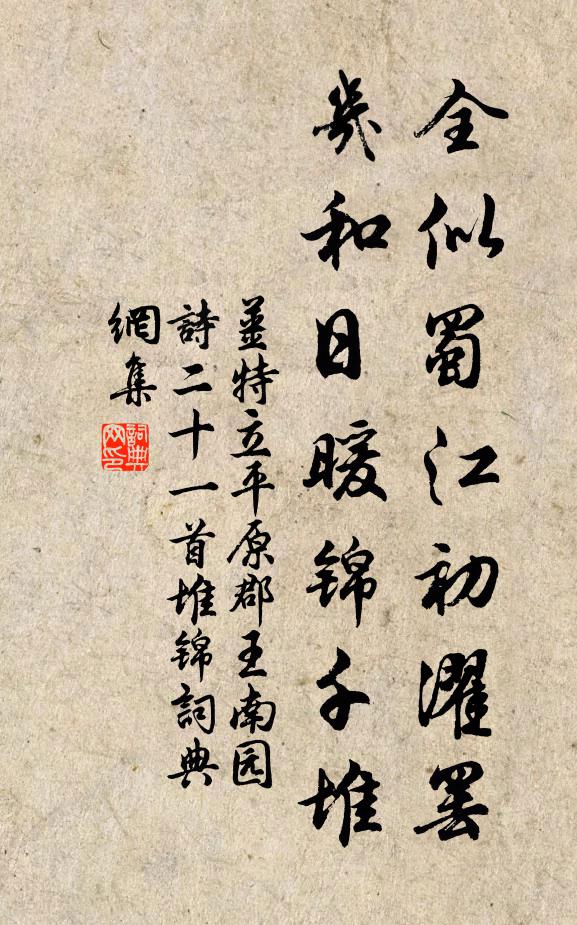 全似蜀江初濯罢
风和日暖锦千堆
姜特立平原郡王南园
詩二十一首堆锦詞典
網集
詞典网印